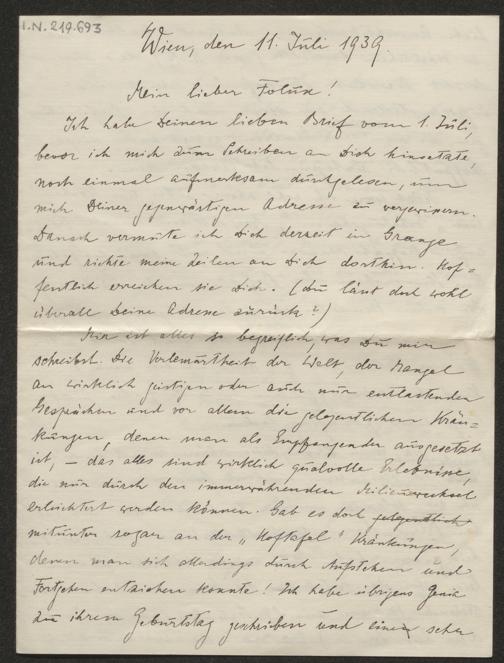 I.N. 219.693
Wien, den 11. Juli 1939.
Mein lieber
Ich habe Deinen lieben Brief vom 1. Juli,
bevor ich mich zum Schreiben an Dich hinsetzte,
noch einmal aufmerksam durchgelesen, um
mich Deiner gegenwärtigen Adresse zu vergewissern.
Danach vermute ich Dich derzeit in Grange
und richte meine Zeilen an Dich dorthin. Hof=
fentlich erreichen sie Dich. (Du läßt doch wohl
überall Deine Adresse zurück?)
Mir ist alles so begreiflich, was Du mir
schreibst. Die der Welt, der Mangel
an wirklich geistigen oder auch nur entlastenden
Gesprächen und vor allem die gelegentlichen Krän=
kungen, denen man als Empfangender ausgesetzt
ist, – das alles sind wirklich qualvolle Erlebnisse,
die nur durch den immerwährenden Milieuwechsel
erleichtert werden können. Gab es doch gelegentlich
mitunter sogar an der „Hoftafel" Kränkungen,
denen man sich allerdings durch Aufstehen und
Fortgehen entziehen konnte! Ich habe übrigens
zu ihrem Geburtstag geschrieben und einen sehr